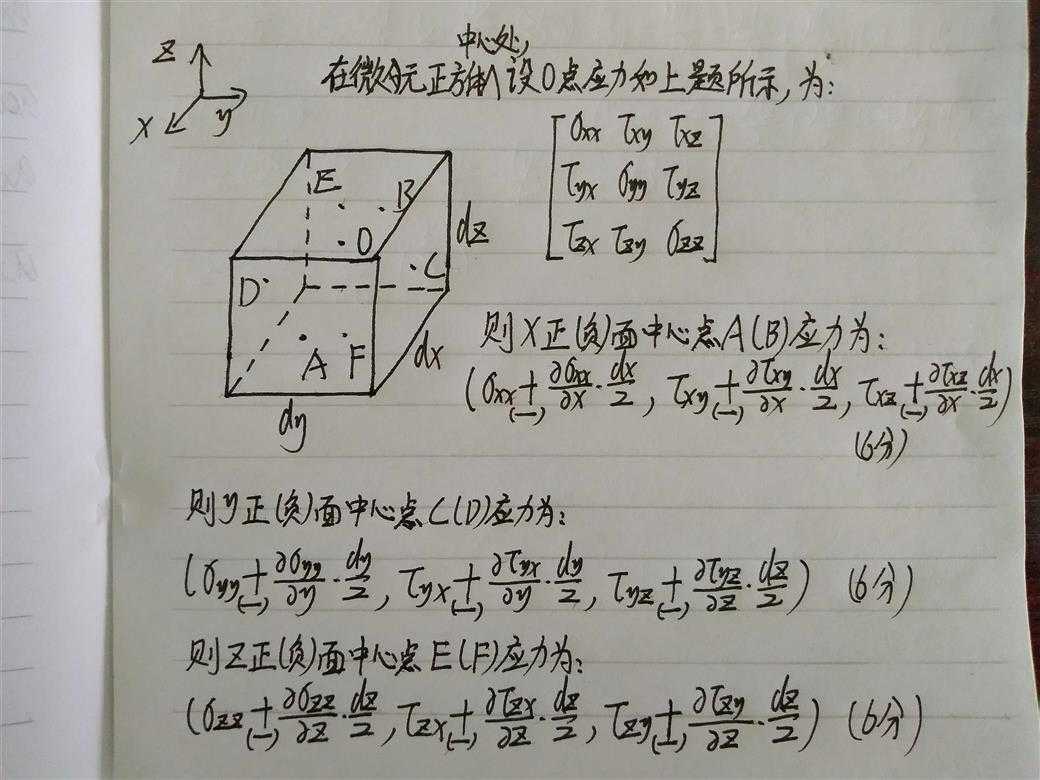 中心处,
在微分元正方体∧设O点应力如上题所示,为:
z
y
x
σxx τxy τxz
τyx σyy τyz
τzx τzy σzz
E
B
O
dz
D
C
A
F
dx
dy
则X正(负)面中心点A(B)应力为:
(σxx +(-) ∂σxx/∂x · dx/2, τxy +(-) ∂τxy/∂x · dx/2, τxz +(-) ∂τxz/∂x · dx/2)
(6分)
则y正(负)面中心点C(D)应力为:
(σyy +(-) ∂σyy/∂y · dy/2, τyx +(-) ∂τyx/∂y · dy/2, τyz +(-) ∂τyz/∂z · dz/2) (6分)
则Z正(负)面中心点E(F)应力为:
(σzz +(-) ∂σzz/∂z · dz/2, τzx +(-) ∂τzx/∂z · dz/2, τzy +(-) ∂τzy/∂z · dz/2) (6分)